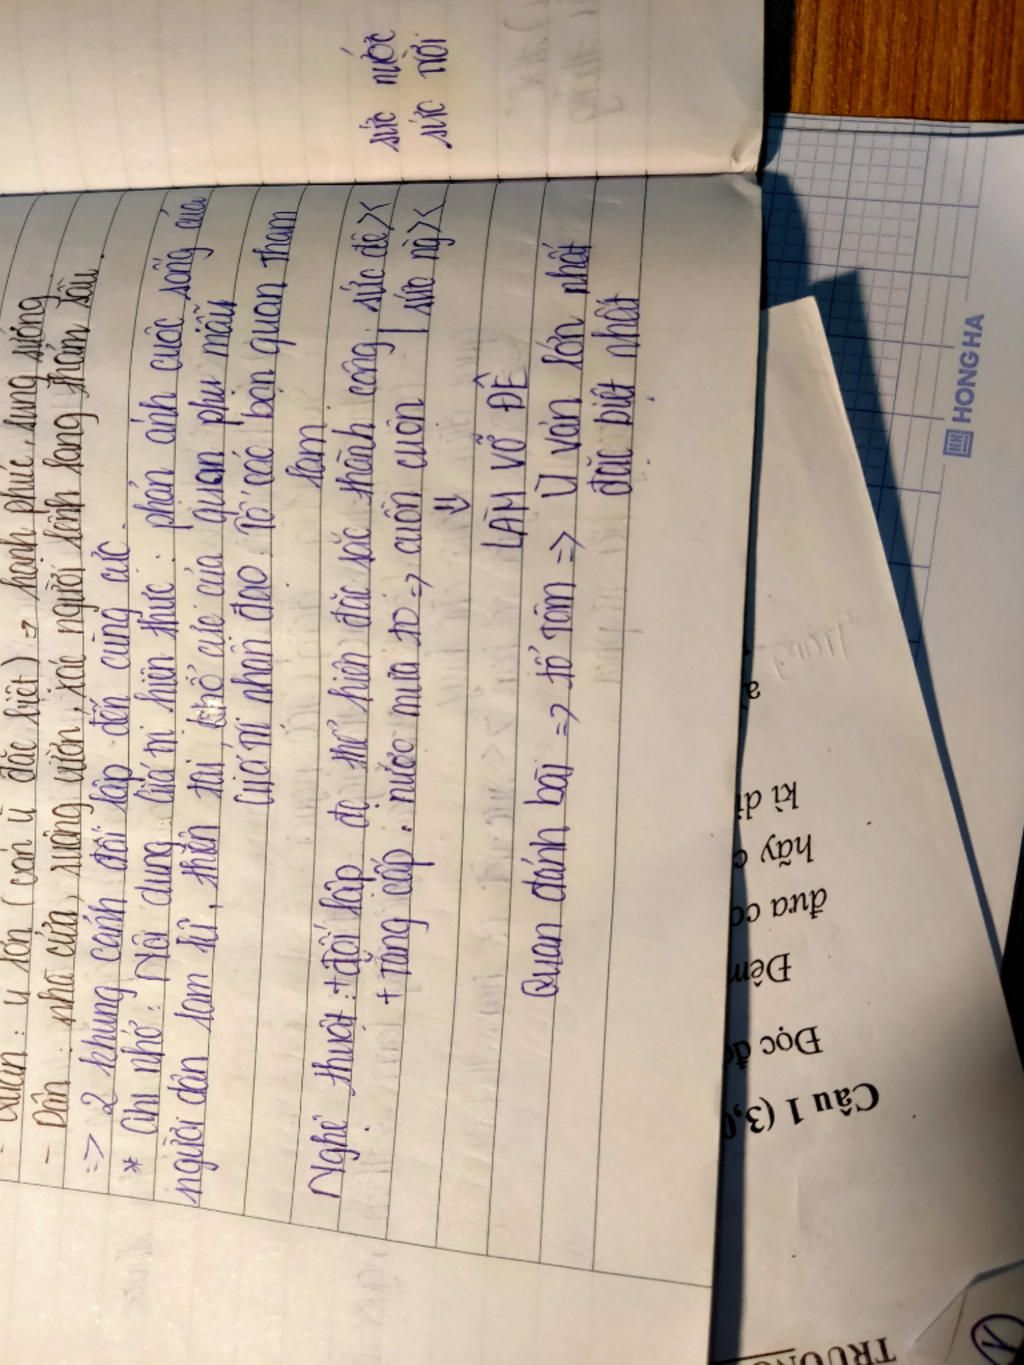 Quan: ù lớn (còn ù đặc biệt) => hạnh phúc, sung sướng
- Dân: nhà cửa, ruộng vườn, xác người lênh lang thảm sầu.
=> 2 khung cảnh đối lập đến cùng cực.
* Ghi nhớ: Nội dung: Giá trị hiện thực: phản ánh cuộc sống của
người dân lam lũ, thiên tai, khổ cực của quan phụ mẫu
Giá trị nhân đạo: Tố cáo bọn quan tham
lam
Nghệ thuật: + đối lập để thể hiện đặc sắc thành công. sức đê ><
sức nước
+ Tăng cấp: nước mưa to => cuồn cuộn | sức ng ><
sức trời
⇓
LÀM VỠ ĐÊ
Quan đánh bài => tổ tôm => Ù ván lớn nhất
đặc biệt nhất
HR HONG HA
TRƯỜNG
Câu 1 (3,
Đọc đ
Đêm
đưa
hãy
kì di